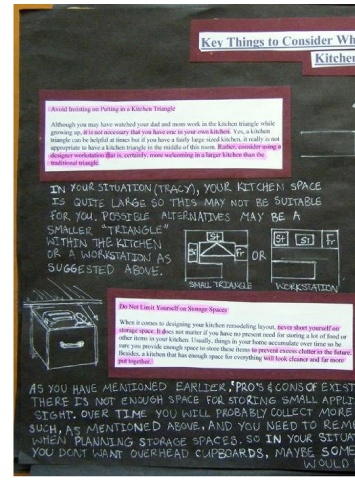 Key Things to Consider Wh
Kitchen
Avoid Insisting on Putting in a Kitchen Triangle
Although you may have watched your dad and mom work in the kitchen triangle while
growing up, it is not necessary that you have one in your own kitchen. Yes, a kitchen
triangle can be helpful at times but if you have a fairly large sized kitchen, it really is not
appropriate to have a kitchen triangle in the middle of this room. Rather, consider using a
designer workstation that is, certainly, more welcoming in a larger kitchen than the
traditional triangle.
IN YOUR SITUATION (TRACY), YOUR KITCHEN SPACE
IS QUITE LARGE SO THIS MAY NOT BE SUITABLE
FOR YOU. POSSIBLE ALTERNATIVES MAY BE A
SMALLER "TRIANGLE"
WITHIN THE KITCHEN
OR A WORKSTATION AS
SUGGESTED ABOVE.
St
Si
Fr
OR
St
Si
Fr
SMALL TRIANGLE
WORKSTATION
Do Not Limit Yourself on Storage Spaces
When it comes to designing your kitchen remodeling layout, never short yourself on
storage space. It does not matter if you have no present need for storing a lot of food or
other items in your kitchen. Usually, things in your home accumulate over time so be
sure you provide enough space to store these items to prevent excess clutter in the future.
Besides, a kitchen that has enough space for everything will look cleaner and far more
put together.
AS YOU HAVE MENTIONED EARLIER, "PRO'S & CONS OF EXIST
THERE IS NOT ENOUGH SPACE FOR STORING SMALL APPLI
SIGHT. OVER TIME YOU WILL PROBABLY COLLECT MORE
SUCH, AS MENTIONED ABOVE, AND YOU NEED TO REME
WHEN PLANNING STORAGE SPACES. SO IN YOUR SITUAT
YOU DONT WANT OVERHEAD CUPBOARDS, MAYBE SOME
WOULD